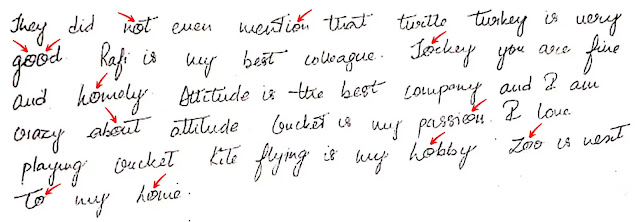 They did not even mention that turtle turkey is very
good. Rafi is my best colleague. Jockey you are fine
and homely. Attitude is the best company and I am
crazy about attitude cricket is my passion. I love
playing cricket kite flying is my hobby. Zoo is next
To my home.